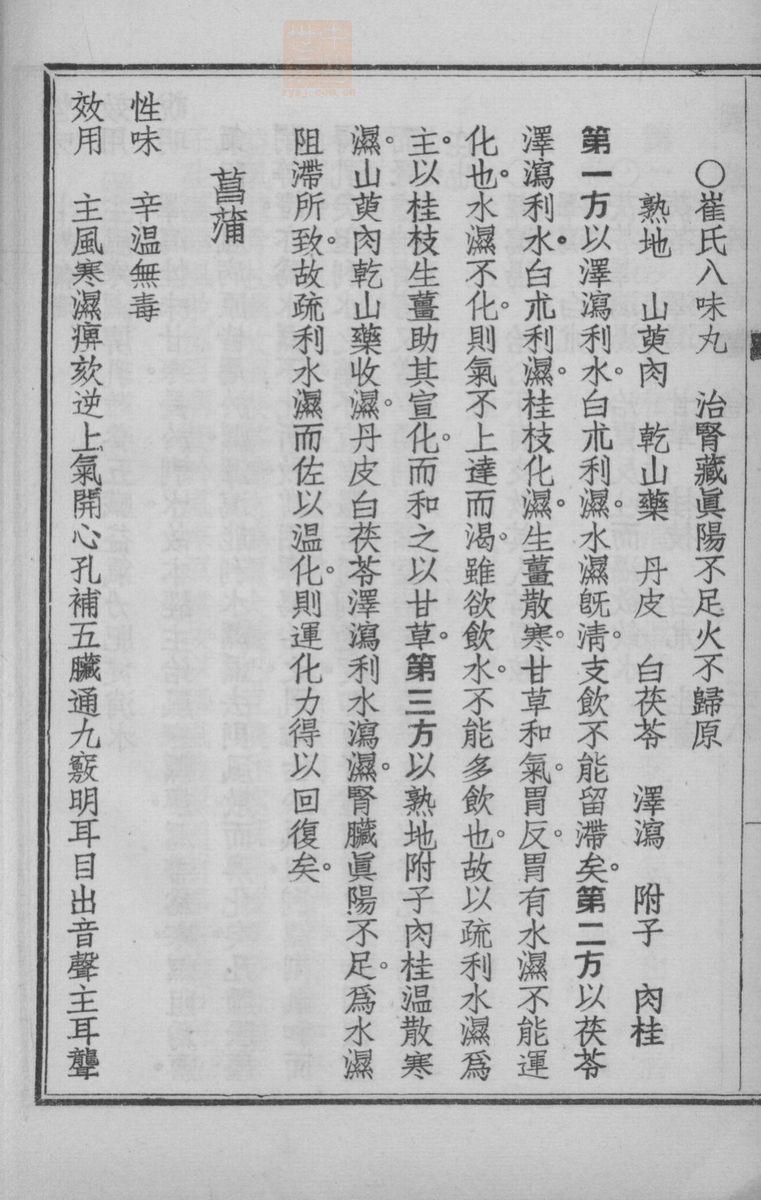 〇崔氏八味丸　治腎藏眞陽不足火不歸原
熟地　山萸肉　乾山藥　丹皮　白茯苓　澤瀉　附子　肉桂
第一方以澤瀉利水。白朮利濕。水濕旣淸。支飲不能留滯矣。第二方以茯苓
澤瀉利水。白朮利濕。桂枝化濕。生薑散寒。甘草和氣。胃反。胃有水濕不能運
化也。水濕不化。則氣不上達而渴。雖欲飲水。不能多飲也。故以疏利水濕爲
主。以桂枝生薑助其宣化。而和之以甘草。第三方以熟地附子肉桂温散寒
濕。山萸肉乾山藥收濕。丹皮白茯苓澤瀉利水瀉濕。腎臟眞陽不足。爲水濕
阻滯所致。故疏利水濕而佐以温化。則運化力得以回復矣。
菖蒲
性味　辛温無毒
效用　主風寒濕痹欬逆上氣開心孔補五臟通九竅明耳目出音聲主耳聾